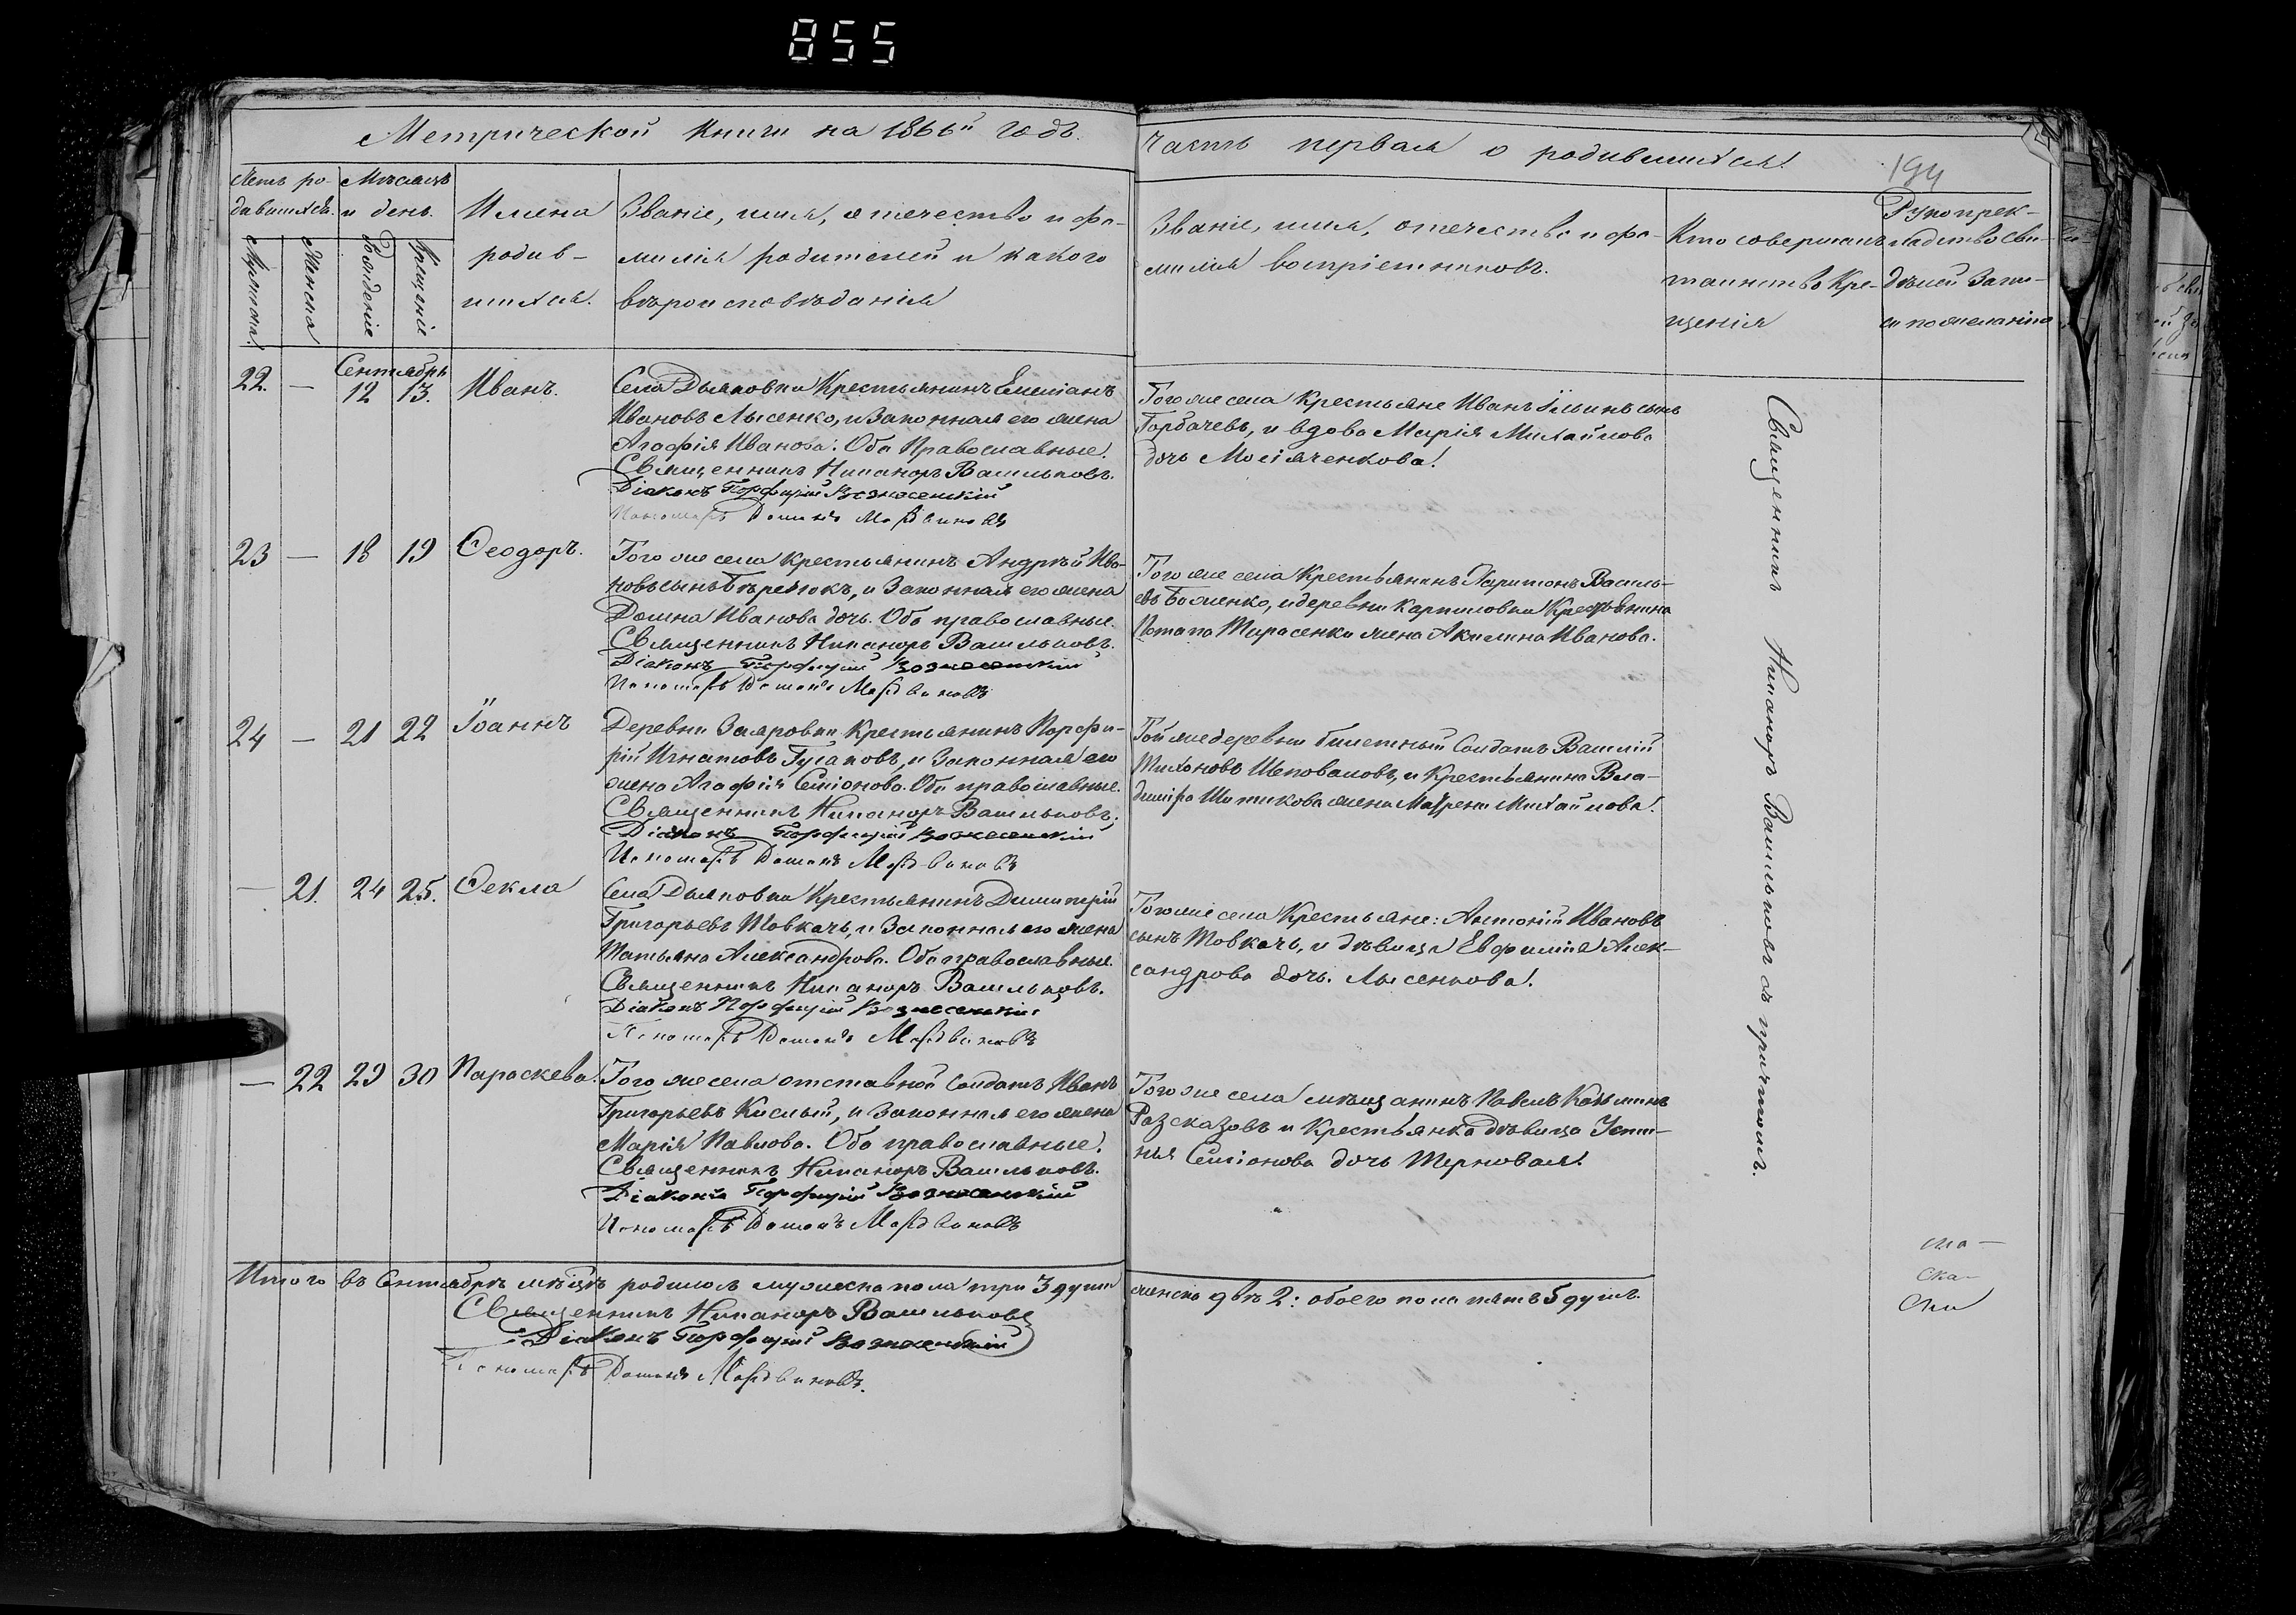 855
Метрической книги на 1866й годъ.
Часть первая о родившихся.
194
Счетъ ро-
дившихся.
Мужеска
Женска
Мѣсяцъ
и день.
Рожденіе
Крещеніе
Имена
родив-
шихся.
Званіе, имя, отечество и фа-
милія родителей и какого
вѣроисповѣданія
Званіе, имя, отечество и фа-
милія воспріемниковъ.
Кто совершалъ
таинство Кре-
щенія
Рукоприк-
ладство сви-
дѣтелей запи-
си по желанію
Сентябрь
22. — 12 13. Иванъ.
Села Дьяковки Крестьянинъ Емеліанъ
Ивановъ Лысенко, и Законная его жена
Агафія Иванова. Оба Православные.
Священникъ Никаноръ Васильковъ.
Діаконъ Порфирій Вознесенскій
Пономарь Мордвиновъ
Того же села Крестьяне Иванъ Ильинъ сынъ
Горбачевъ, и вдова Марія Михайлова
дочь
23 — 18 19 Ѳеодоръ.
Того же села крестьянинъ Андрей Ива-
новъ сынъ и Законная его жена
Домна Иванова дочь. Оба православные.
Священникъ Никаноръ Васильковъ.
Діаконъ Порфирій Вознесенскій
Пономарь Мордвиновъ
Того же села Крестьянинъ Харитонъ Василь-
евъ Боженко, и деревни Карпиловки Крестьянина
Потапа Тарасенки жена Акилина Иванова.
24 — 21 22 Іоаннъ
Деревни Крестьянинъ Порфи-
рій Игнатовъ Гусаковъ, и Законная его
жена Агафія Семіонова. Оба православные.
Священникъ Никаноръ Васильковъ.
Діаконъ Порфирій Вознесенскій
Пономарь Мордвиновъ
Той же деревни билетный Солдатъ Василій
Тихоновъ Шеповаловъ, и Крестьянина Вла-
диміра жена Матрена Михайлова.
— 21. 24 25. Ѳекла
Села Дьяковки Крестьянинъ Димитрій
Григорьевъ Товкачъ, и Законная его жена
Татьяна Александрова. Оба православные.
Священникъ Никаноръ Васильковъ.
Діаконъ Порфирій Вознесенскій
Пономарь Мордвиновъ
Того же села Крестьяне: Антоній Ивановъ
сынъ Товкачъ, и дѣвица Евфимія Алек-
сандрова дочь. Лысенкова.
— 22 29 30 Параскева.
Того же села отставной Солдатъ Иванъ
Григорьевъ Кислый, и Законная его жена
Марія Павлова. Оба православные.
Священникъ Никаноръ Васильковъ.
Діаконъ Порфирій Вознесенскій
Пономарь Мордвиновъ
Того же села мѣщанинъ Павелъ Козьминъ
Разсказовъ и Крестьянка дѣвица Усти-
нья Семіонова дочь Терновая.
Священникъ Никаноръ Васильковъ съ причтомъ.
Итого въ Сентябрѣ мѣсцѣ родилось мужеска пола три 3 души
женска двѣ 2: обоего пола пять 5 душъ.
Священникъ Никаноръ Васильковъ
Діаконъ Порфирій Вознесенскій
Пономарь Мордвиновъ.